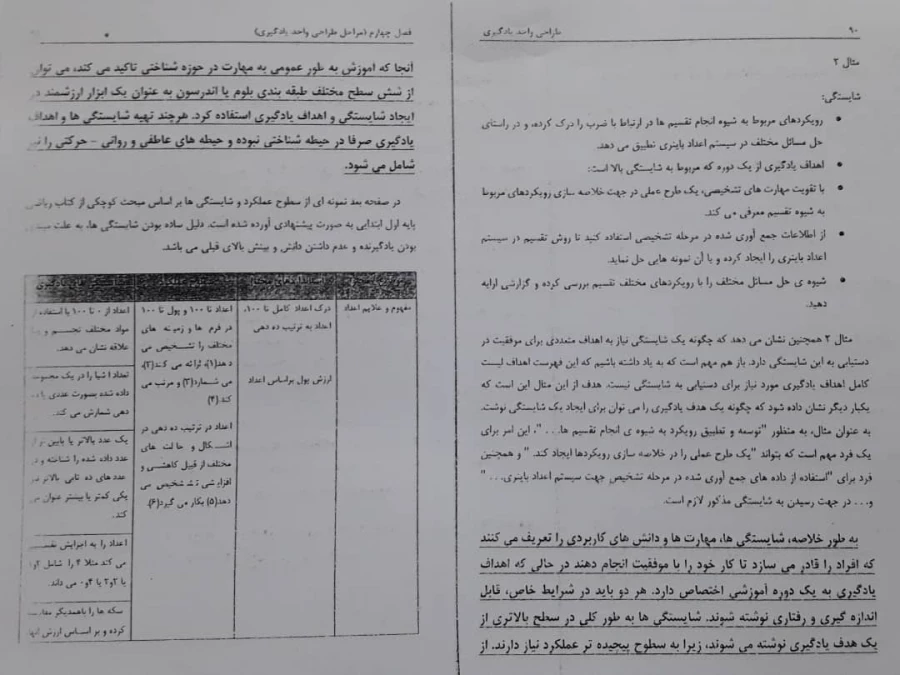 ۹۰
طراحی واحد یادگیری
مثال ۲
شایستگی:
• رویکردهای مربوط به شیوه انجام تقسیم ها در ارتباط با ضرب را درک کرده، و در راستای
حل مسائل مختلف در سیستم اعداد باینری تطبیق می دهد.
• اهداف یادگیری از یک دوره که مربوط به شایستگی بالا است:
• با تقویت مهارت های تشخیصی، یک طرح عملی در جهت خلاصه سازی رویکردهای مربوط
به شیوه تقسیم معرفی می کند.
• از اطلاعات جمع آوری شده در مرحله تشخیصی استفاده کنید تا روش تقسیم در سیستم
اعداد باینری را ایجاد کرده و با آن نمونه هایی حل نماید.
• شیوه ی حل مسائل مختلف را با رویکردهای مختلف تقسیم بررسی کرده و گزارشی ارایه
دهید.
مثال ۲ همچنین نشان می دهد که چگونه یک شایستگی نیاز به اهداف متعددی برای موفقیت در
دستیابی به این شایستگی دارد. باز هم مهم است که به یاد داشته باشیم که این فهرست اهداف لیست
کامل اهداف یادگیری مورد نیاز برای دستیابی به شایستگی نیست. هدف از این مثال این است که
یکبار دیگر نشان داده شود که چگونه یک هدف یادگیری را می توان برای ایجاد یک شایستگی نوشت.
به عنوان مثال، به منظور "توسعه و تطبیق رویکرد به شیوه ی انجام تقسیم ها... "، این امر برای
یک فرد مهم است که بتواند "یک طرح عملی را در خلاصه سازی رویکردها ایجاد کند. " و همچنین
فرد برای "استفاده از داده های جمع آوری شده در مرحله تشخیص جهت سیستم اعداد باینری... "
و... در جهت رسیدن به شایستگی مذکور لازم است.
به طور خلاصه، شایستگی ها، مهارت ها و دانش های کاربردی را تعریف می کنند
که افراد را قادر می سازد تا کار خود را با موفقیت انجام دهند در حالی که اهداف
یادگیری به یک دوره آموزشی اختصاص دارد. هر دو باید در شرایط خاص، قابل
اندازه گیری و رفتاری نوشته شوند. شایستگی ها به طور کلی در سطح بالاتری از
یک هدف یادگیری نوشته می شوند، زیرا به سطوح پیچیده تر عملکرد نیاز دارند. از
فصل چهارم (مراحل طراحی واحد یادگیری)
آنجا که آموزش به طور عمومی به مهارت در حوزه شناختی تاکید می کند، می توان
از شش سطح مختلف طبقه بندی بلوم یا اندرسون به عنوان یک ابزار ارزشمند در
ایجاد شایستگی و اهداف یادگیری استفاده کرد. هرچند تهیه شایستگی ها و اهداف
یادگیری صرفا در حیطه شناختی نبوده و حیطه های عاطفی و روانی - حرکتی را نیز
شامل می شود.
در صفحه بعد نمونه ای از سطوح عملکرد و شایستگی ها بر اساس مبحث کوچکی از کتاب ریاضی
پایه اول ابتدایی به صورت پیشنهادی آورده شده است. دلیل ساده بودن شایستگی ها، به علت مبتدی
بودن یادگیرنده و عدم داشتن دانش و بینش بالای قبلی می باشد.
مفهوم و علایم اعداد
درک اعداد کامل تا ۱۰۰،
اعداد به ترتیب ده دهی
ارزش پول براساس اعداد
اعداد تا ۱۰۰ و پول تا ۱۰۰
در فرم ها و زمینه های
مختلف را تشخیص می
دهد(۱)، ارائه می کند(۲)،
می شمارد(۳) و مرتب می
کند.(۴)
اعداد در ترتیب ده دهی در
اشکال و حالت های
مختلف از قبیل کاهشی و
افزایشی تشخیص می
دهد(۵) بکار می گیرد(۶).
اعداد از ۰ تا ۱۰۰ با استفاده از
مواد مختلف تجسم و
علاقه نشان می دهد.
تعداد اشیا را در یک مجموعه
داده شده بصورت عددی
دهی شمارش می کند.
یک عدد بالاتر یا پایین تر از
عدد داده شده را شناخته و در
عدد های ده تایی بالاتر
یکی کمتر یا بیشتر عنوان می
کند.
اعداد را به اجزایش
می کند مثلا ۴ را شامل
یا ۲و۲ یا ۴و۰ می داند.
سکه ها را باهمدیگر مقایسه
کرده و بر اساس ارزش آنها